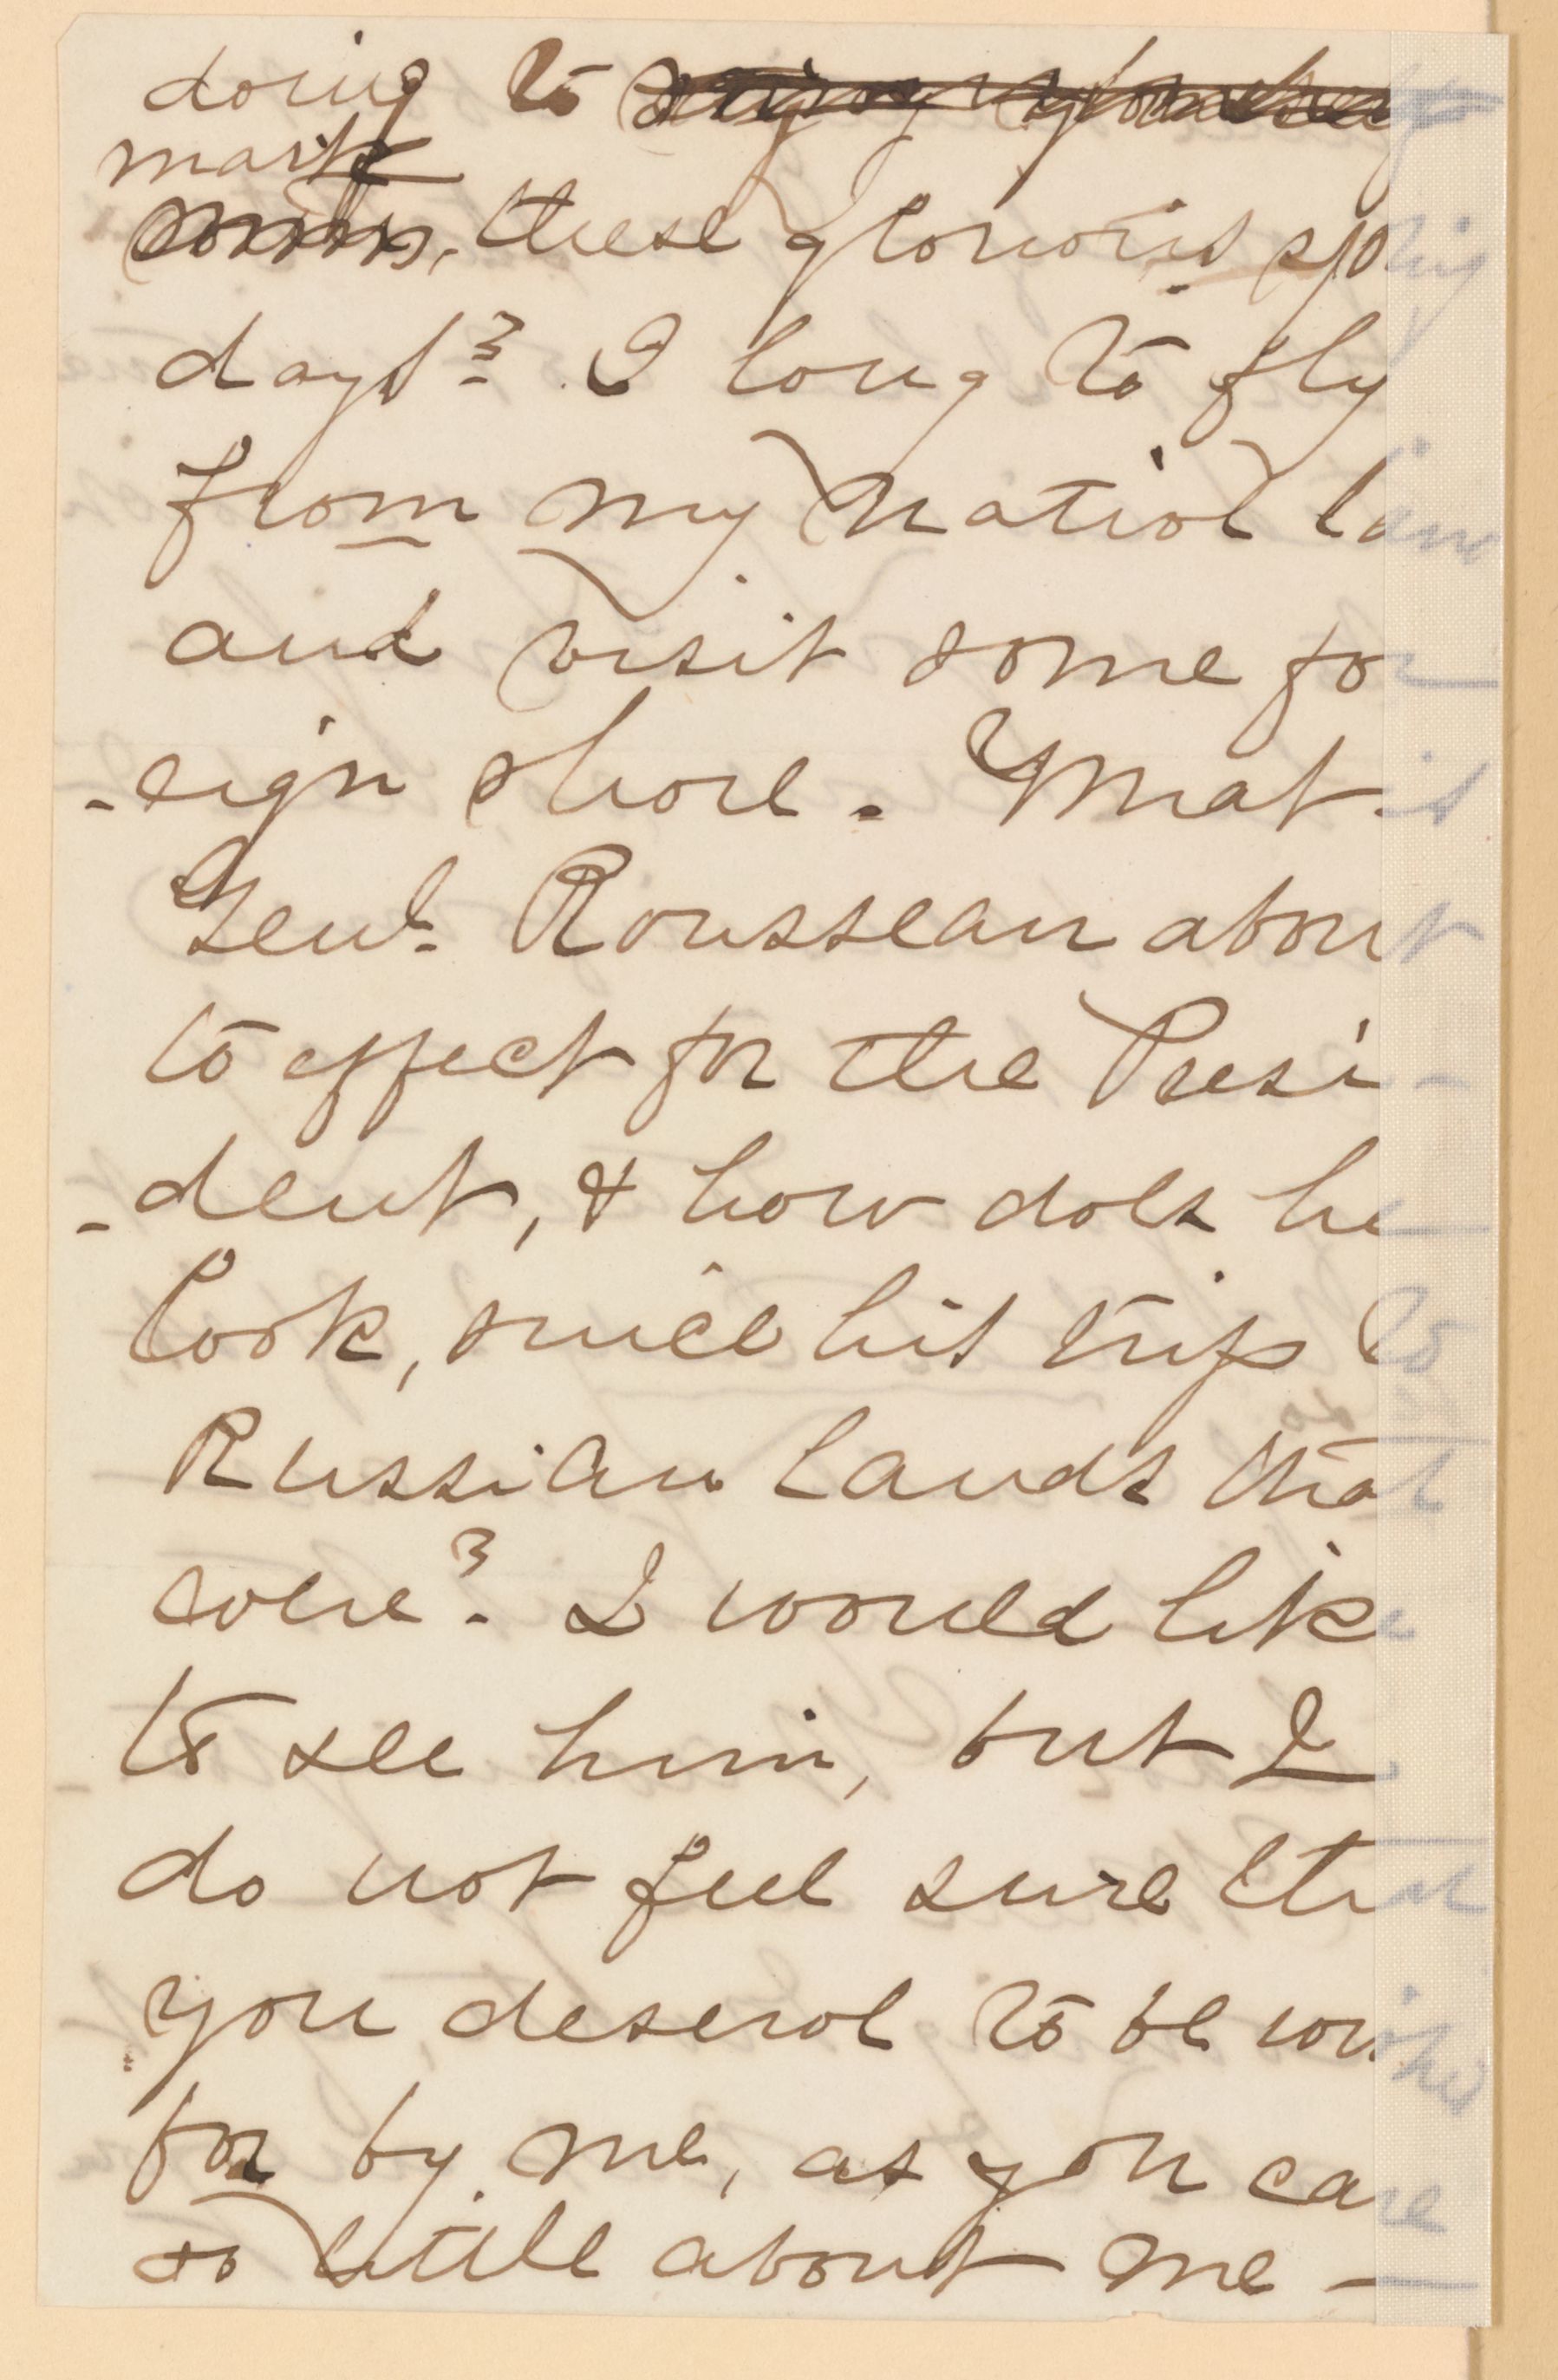 doing to
mark
these glorious spring
days? I long to fly
from my native land
and visit some for
-eign shore. What is
Genl. Rousseau about
to effect for the Presi-
-dent, & how does he
look, since his trip to
Russian lands that
were? I would like
to see him, but I
do not feel sure that
you deserve to be wished
for by me, as you care
so little about me —